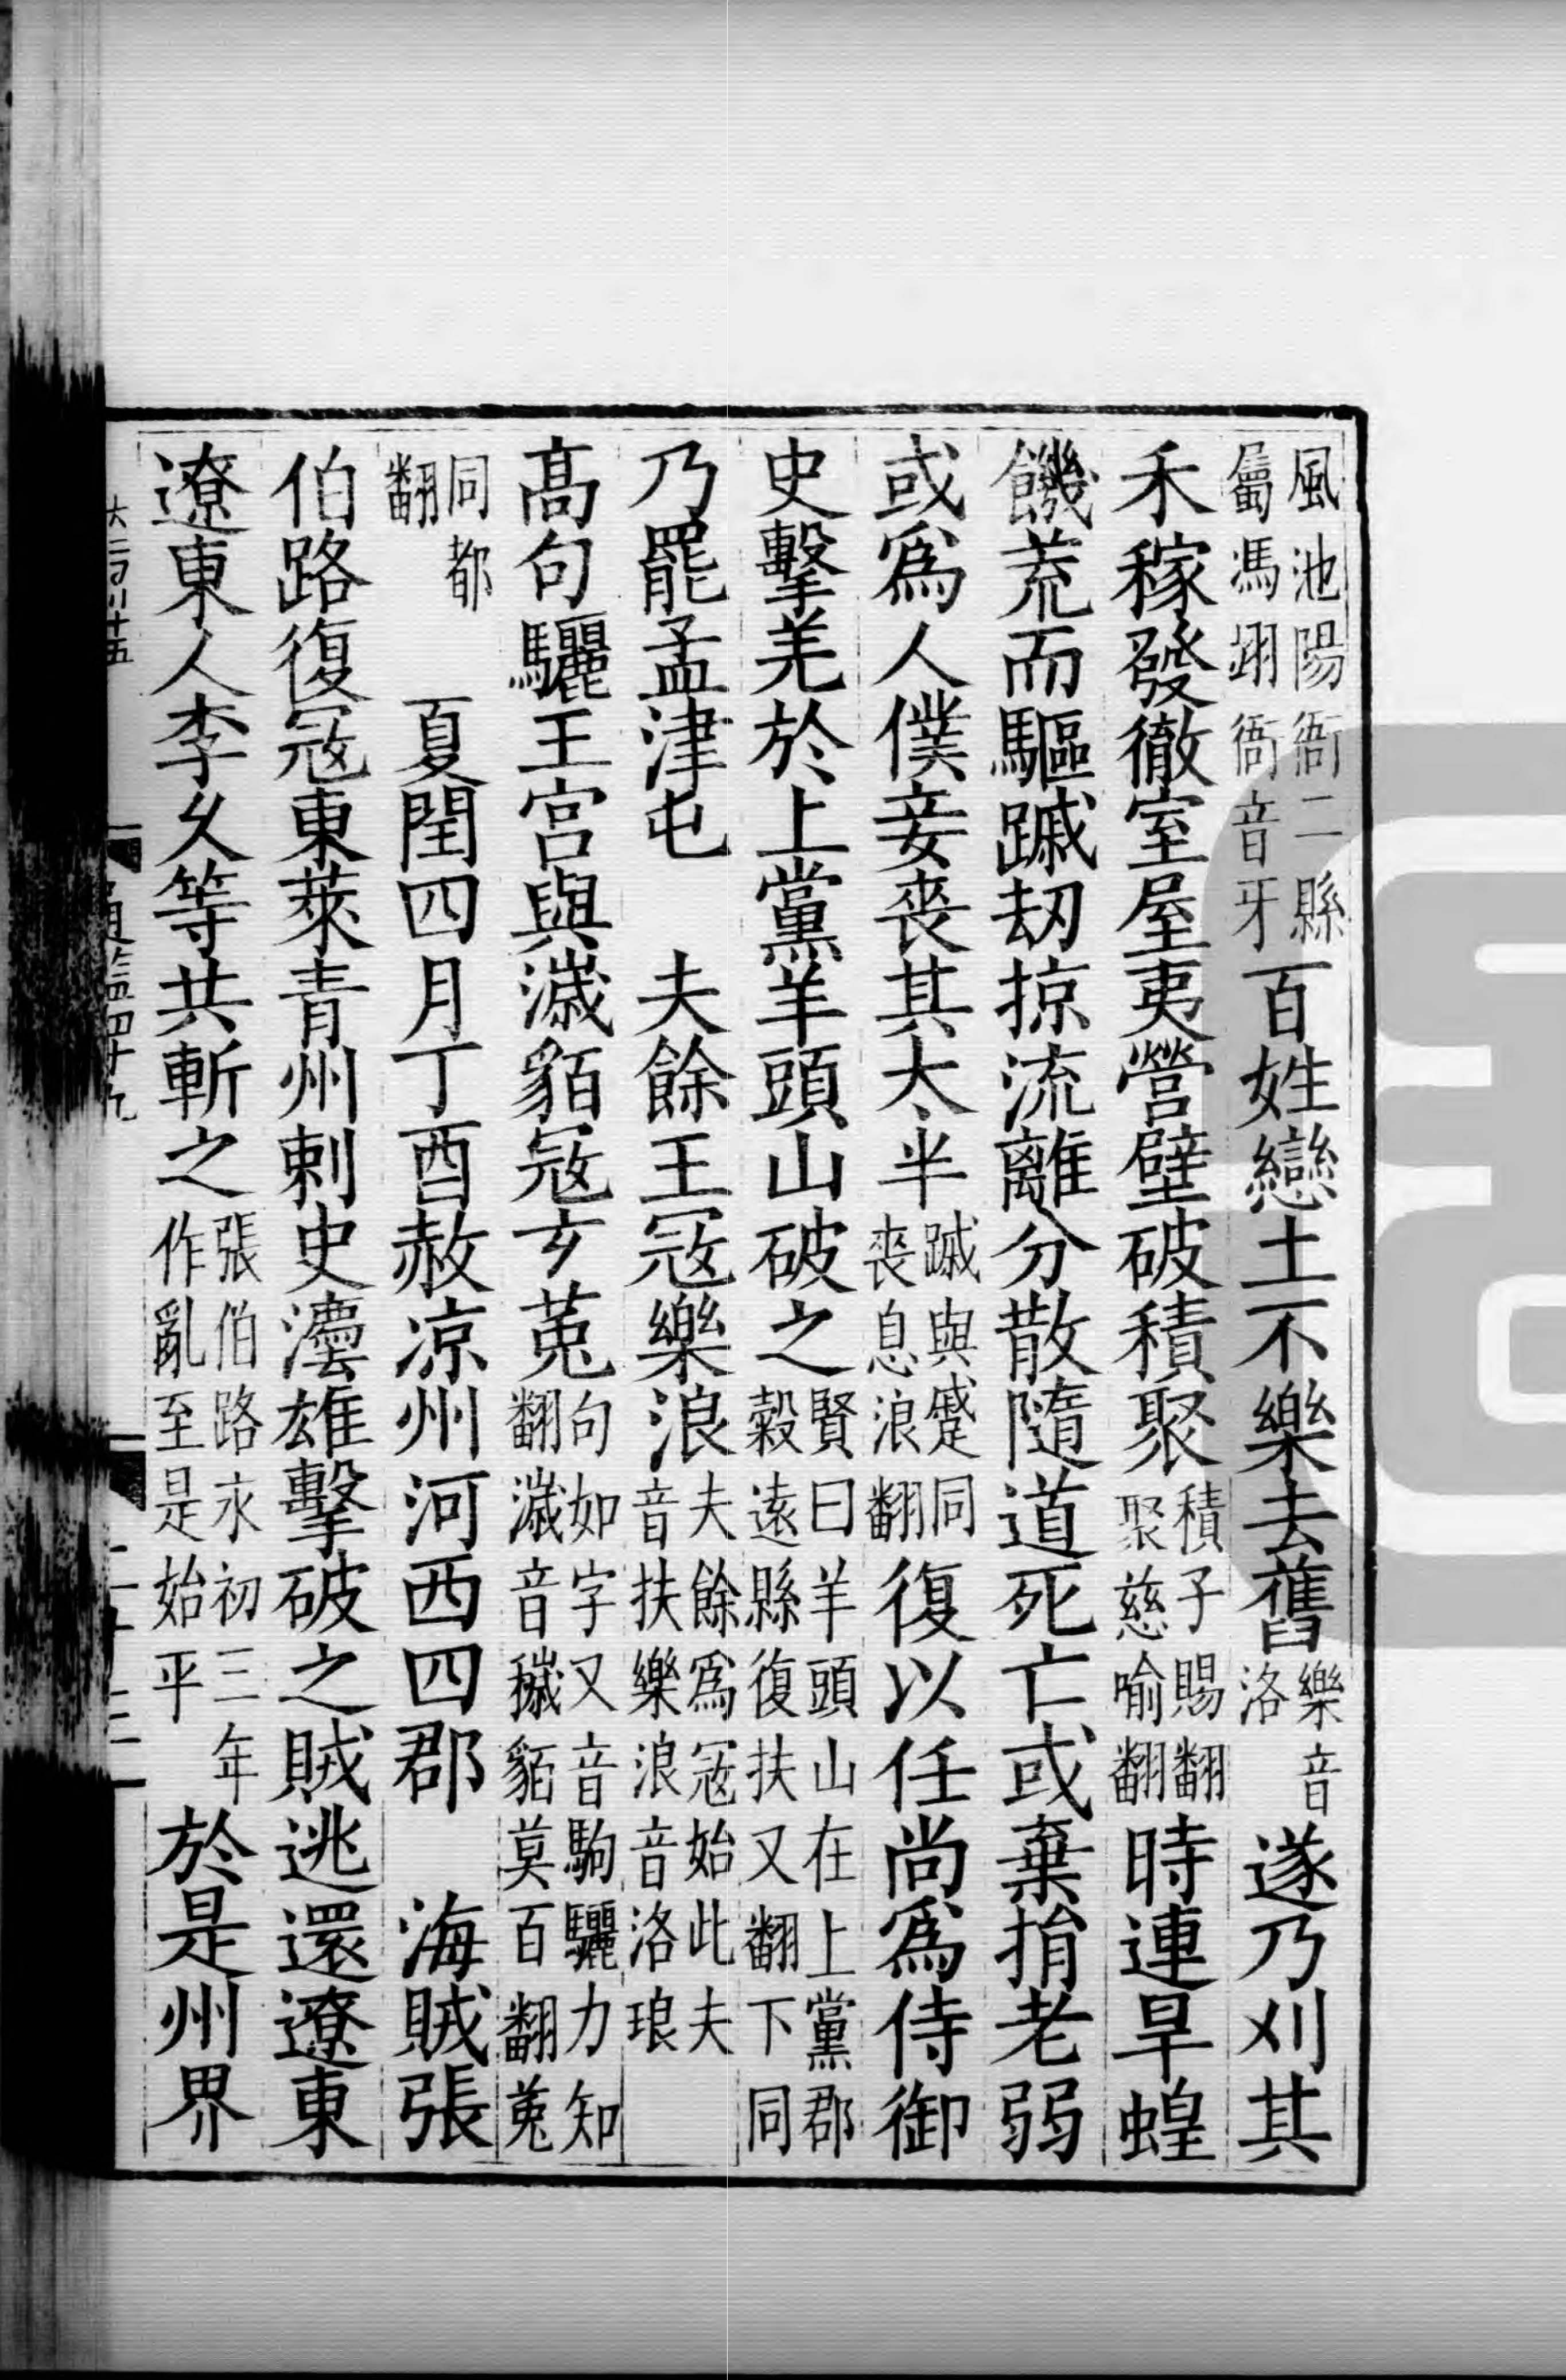 風池陽衙二縣屬馮翊衙音牙百姓戀土不樂去舊樂音洛遂乃刈其
禾稼發徹室屋夷營壁破積聚積子賜翻聚慈喻翻時連旱蝗
饑荒而驅䠞刼掠流離分散隨道死亡或棄捐老弱
或爲人僕妾喪其太半䠞與蹙同喪息浪翻復以任尚爲侍御
史擊羌於上黨羊頭山破之賢曰羊頭山在上黨郡縠遠縣復扶又翻下同
乃罷孟津屯　夫餘王冦樂浪夫餘爲冦始此夫音扶樂浪音洛琅
髙句驪王宮與濊貊冦玄菟句如字又音駒驪力知翻濊音穢貊莫百翻菟
同都翻　夏閏四月丁酉赦凉州河西四郡　海賊張
伯路復冦東萊青州刺史灋雄擊破之賊逃還遼東
遼東人李乆等共斬之張伯路永初三年作亂至是始平於是州界
大三百八十五
通鑑四十九